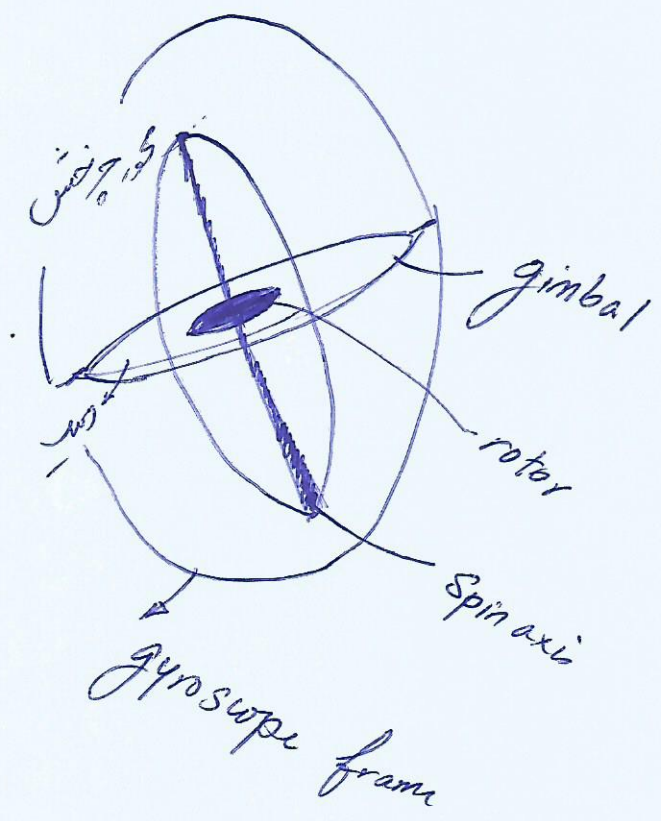 محور چرخش
gimbal
rotor
spin axis
gyroscope frame